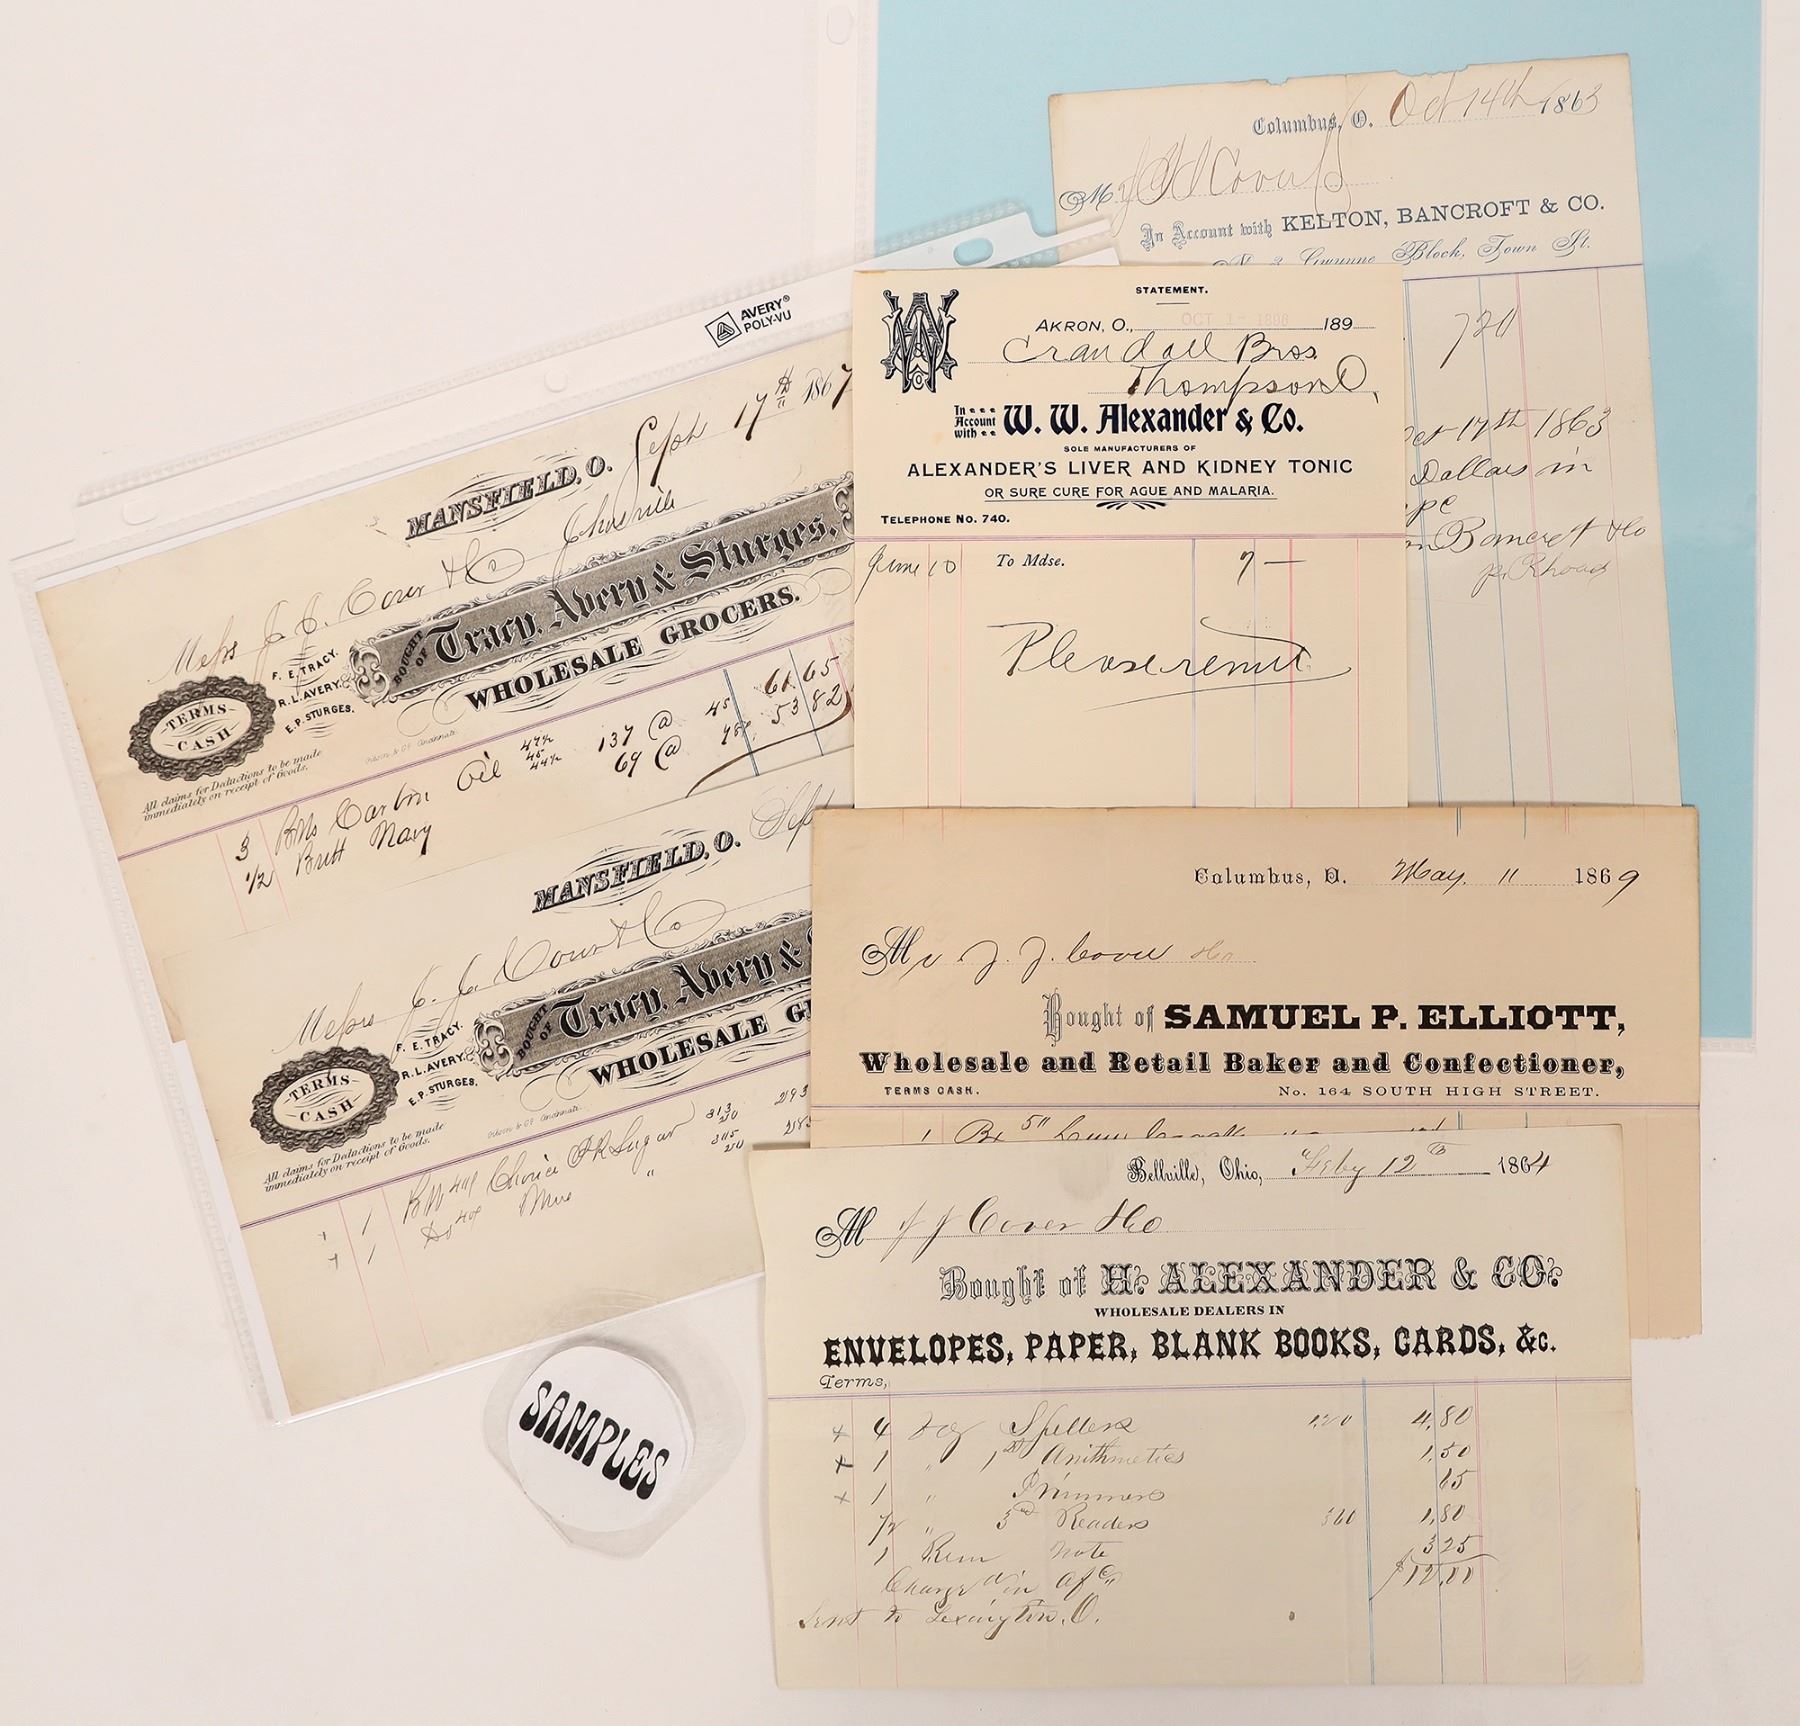 Columbus, O. Oct 14th 1863
M
In Account with KELTON, BANCROFT & CO.
Block, Town St.
720
Oct 17th 1863
Dollars in
Bancroft & Co
p. Rhoads
STATEMENT.
AKRON, O., OCT 1- 1896 189
Crandall Bros.
Thompson O,
In Account with W. W. Alexander & Co.
SOLE MANUFACTURERS OF
ALEXANDER'S LIVER AND KIDNEY TONIC
OR SURE CURE FOR AGUE AND MALARIA.
TELEPHONE NO. 740.
June 10 To Mdse. 7 —
Please remit
AVERY®
POLY-VU
MANSFIELD, O. Sept 17th 1867
Mess J. J. Cover & Co
F. E. TRACY.
R. L. AVERY.
E. P. STURGES.
BOUGHT OF Tracy, Avery & Sturges,
WHOLESALE GROCERS.
TERMS CASH
All claims for Deductions to be made
immediately on receipt of Goods.
3 Bbls Carbon Oil 137 @ 45 61.65
1/2 Butt Navy 69 @ 53 82
MANSFIELD, O. Sept
Mess J. J. Cover & Co
F. E. TRACY.
R. L. AVERY.
E. P. STURGES.
BOUGHT OF Tracy, Avery &
WHOLESALE G
TERMS CASH
All claims for Deductions to be made
immediately on receipt of Goods.
+ 1 Choice Sugar 313 293
+ 1 " 315
Columbus, O. May. 11 1869
Mr J. J. Cover & Co
Bought of SAMUEL P. ELLIOTT,
Wholesale and Retail Baker and Confectioner,
TERMS CASH. No. 164 SOUTH HIGH STREET.
1 Bx
Bellville, Ohio, Feby 12th 1864
M J J Cover & Co
Bought of H. ALEXANDER & CO.
WHOLESALE DEALERS IN
ENVELOPES, PAPER, BLANK BOOKS, CARDS, &c.
Terms,
+ 4 Doz Spellers 1.20 4,80
+ 1 " 1st Arithmetics 1,50
+ 1 " Primmers 65
1/2 " 3rd Readers 360 1,80
1 Rem Note 325
Charge d in a/c $12,00
Sent to Lexington, O.
SAMPLES